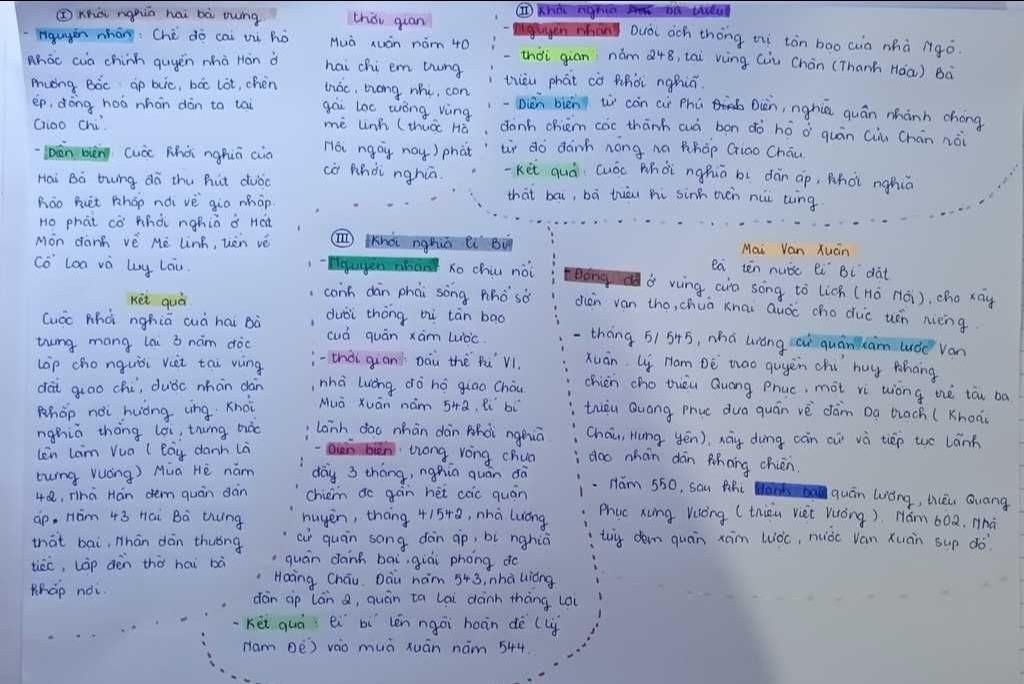 I Khởi nghĩa hai bà trưng
- Nguyên nhân: Chế độ cai trị hà
khắc của chính quyền nhà Hán ở
Phương Bắc: áp bức, bóc lột, chèn
ép, đồng hoá nhân dân ta tại
Giao Chỉ.
- Diễn biến: Cuộc khởi nghĩa của
Hai Bà trưng đã thu hút được
hào kiệt khắp nơi về gia nhập.
Họ phất cờ khởi nghĩa ở Hát
Môn đánh về Mê Linh, tiến về
Cổ Loa và Luy Lâu.
Kết quả
Cuộc khởi nghĩa của hai Bà
trưng mang lại 3 năm độc
lập cho người Việt tại vùng
đất giao chỉ, được nhân dân
khắp nơi hưởng ứng. Khởi
nghĩa thắng lợi, trưng trắc
lên làm Vua (lấy danh là
trưng vương) Mùa Hè năm
42, Nhà Hán đem quân đàn
áp. Năm 43 Hai Bà trưng
thất bại, Nhân dân thương
tiếc, lập đền thờ hai bà
khắp nơi.
thời gian
Mùa xuân năm 40
hai chị em trưng
trắc, trưng nhị, con
gái lạc tướng vùng
mê linh (thuộc Hà
Nội ngày nay) phất
cờ khởi nghĩa.
II Khởi nghĩa bà triệu
- Nguyên nhân: Dưới ách thống trị tàn bạo của nhà Ngô.
- thời gian: năm 248, tại vùng Cửu Chân (Thanh Hóa) Bà
triệu phất cờ khởi nghĩa.
- Diễn biến: từ căn cứ Phú Điền, nghĩa quân nhanh chóng
đánh chiếm các thành của bọn đô hộ ở quận Cửu Chân rồi
từ đó đánh rộng ra khắp Giao Châu.
- Kết quả: Cuộc khởi nghĩa bị đàn áp, khởi nghĩa
thất bại, bà triệu hi sinh trên núi tùng.
III Khởi nghĩa lí Bí
- Nguyên nhân: Ko chịu nổi
cảnh dân phải sống khổ sở
dưới thống trị tàn bạo
của quân xâm lược.
- thời gian: Đầu thế kỉ VI,
nhà Lương đô hộ giao Châu
Mùa xuân năm 542, lí bí
lãnh đạo nhân dân khởi nghĩa
- Diễn biến: trong vòng chưa
đầy 3 tháng, nghĩa quân đã
chiếm đc gần hết các quận
huyện, tháng 4/542, nhà Lương
cử quân sang đàn áp, bị nghĩa
quân đánh bại, giải phóng đc
Hoàng Châu. Đầu năm 543, nhà Lương
đàn áp lần 2, quân ta lại dành thắng lợi
- Kết quả: lí bí lên ngôi hoàn đế (Lý
Nam Đế) vào mùa xuân năm 544.
Mai Van Xuân
là tên nước lí Bí đặt
- Đóng đô ở vùng cửa sông tô lịch (Hà Nội), cho xây
điện vạn thọ, chùa Khai Quốc cho đúc tiền riêng.
- tháng 5/545, nhà lương cử quân xâm lược Vạn
Xuân. Lý Nam Đế trao quyền chỉ huy kháng
chiến cho triệu Quang Phục, một vị tướng trẻ tài ba
triệu Quang Phục đưa quân về đầm Dạ trạch (Khoái
Châu, Hưng Yên), xây dựng căn cứ và tiếp tục lãnh
đạo nhân dân kháng chiến.
- Năm 550, sau khi đánh bại quân lương, triệu Quang
Phục xưng Vương (triệu Việt Vương). Năm 602, Nhà
tùy đem quân xâm lược, nước Vạn Xuân sụp đổ.